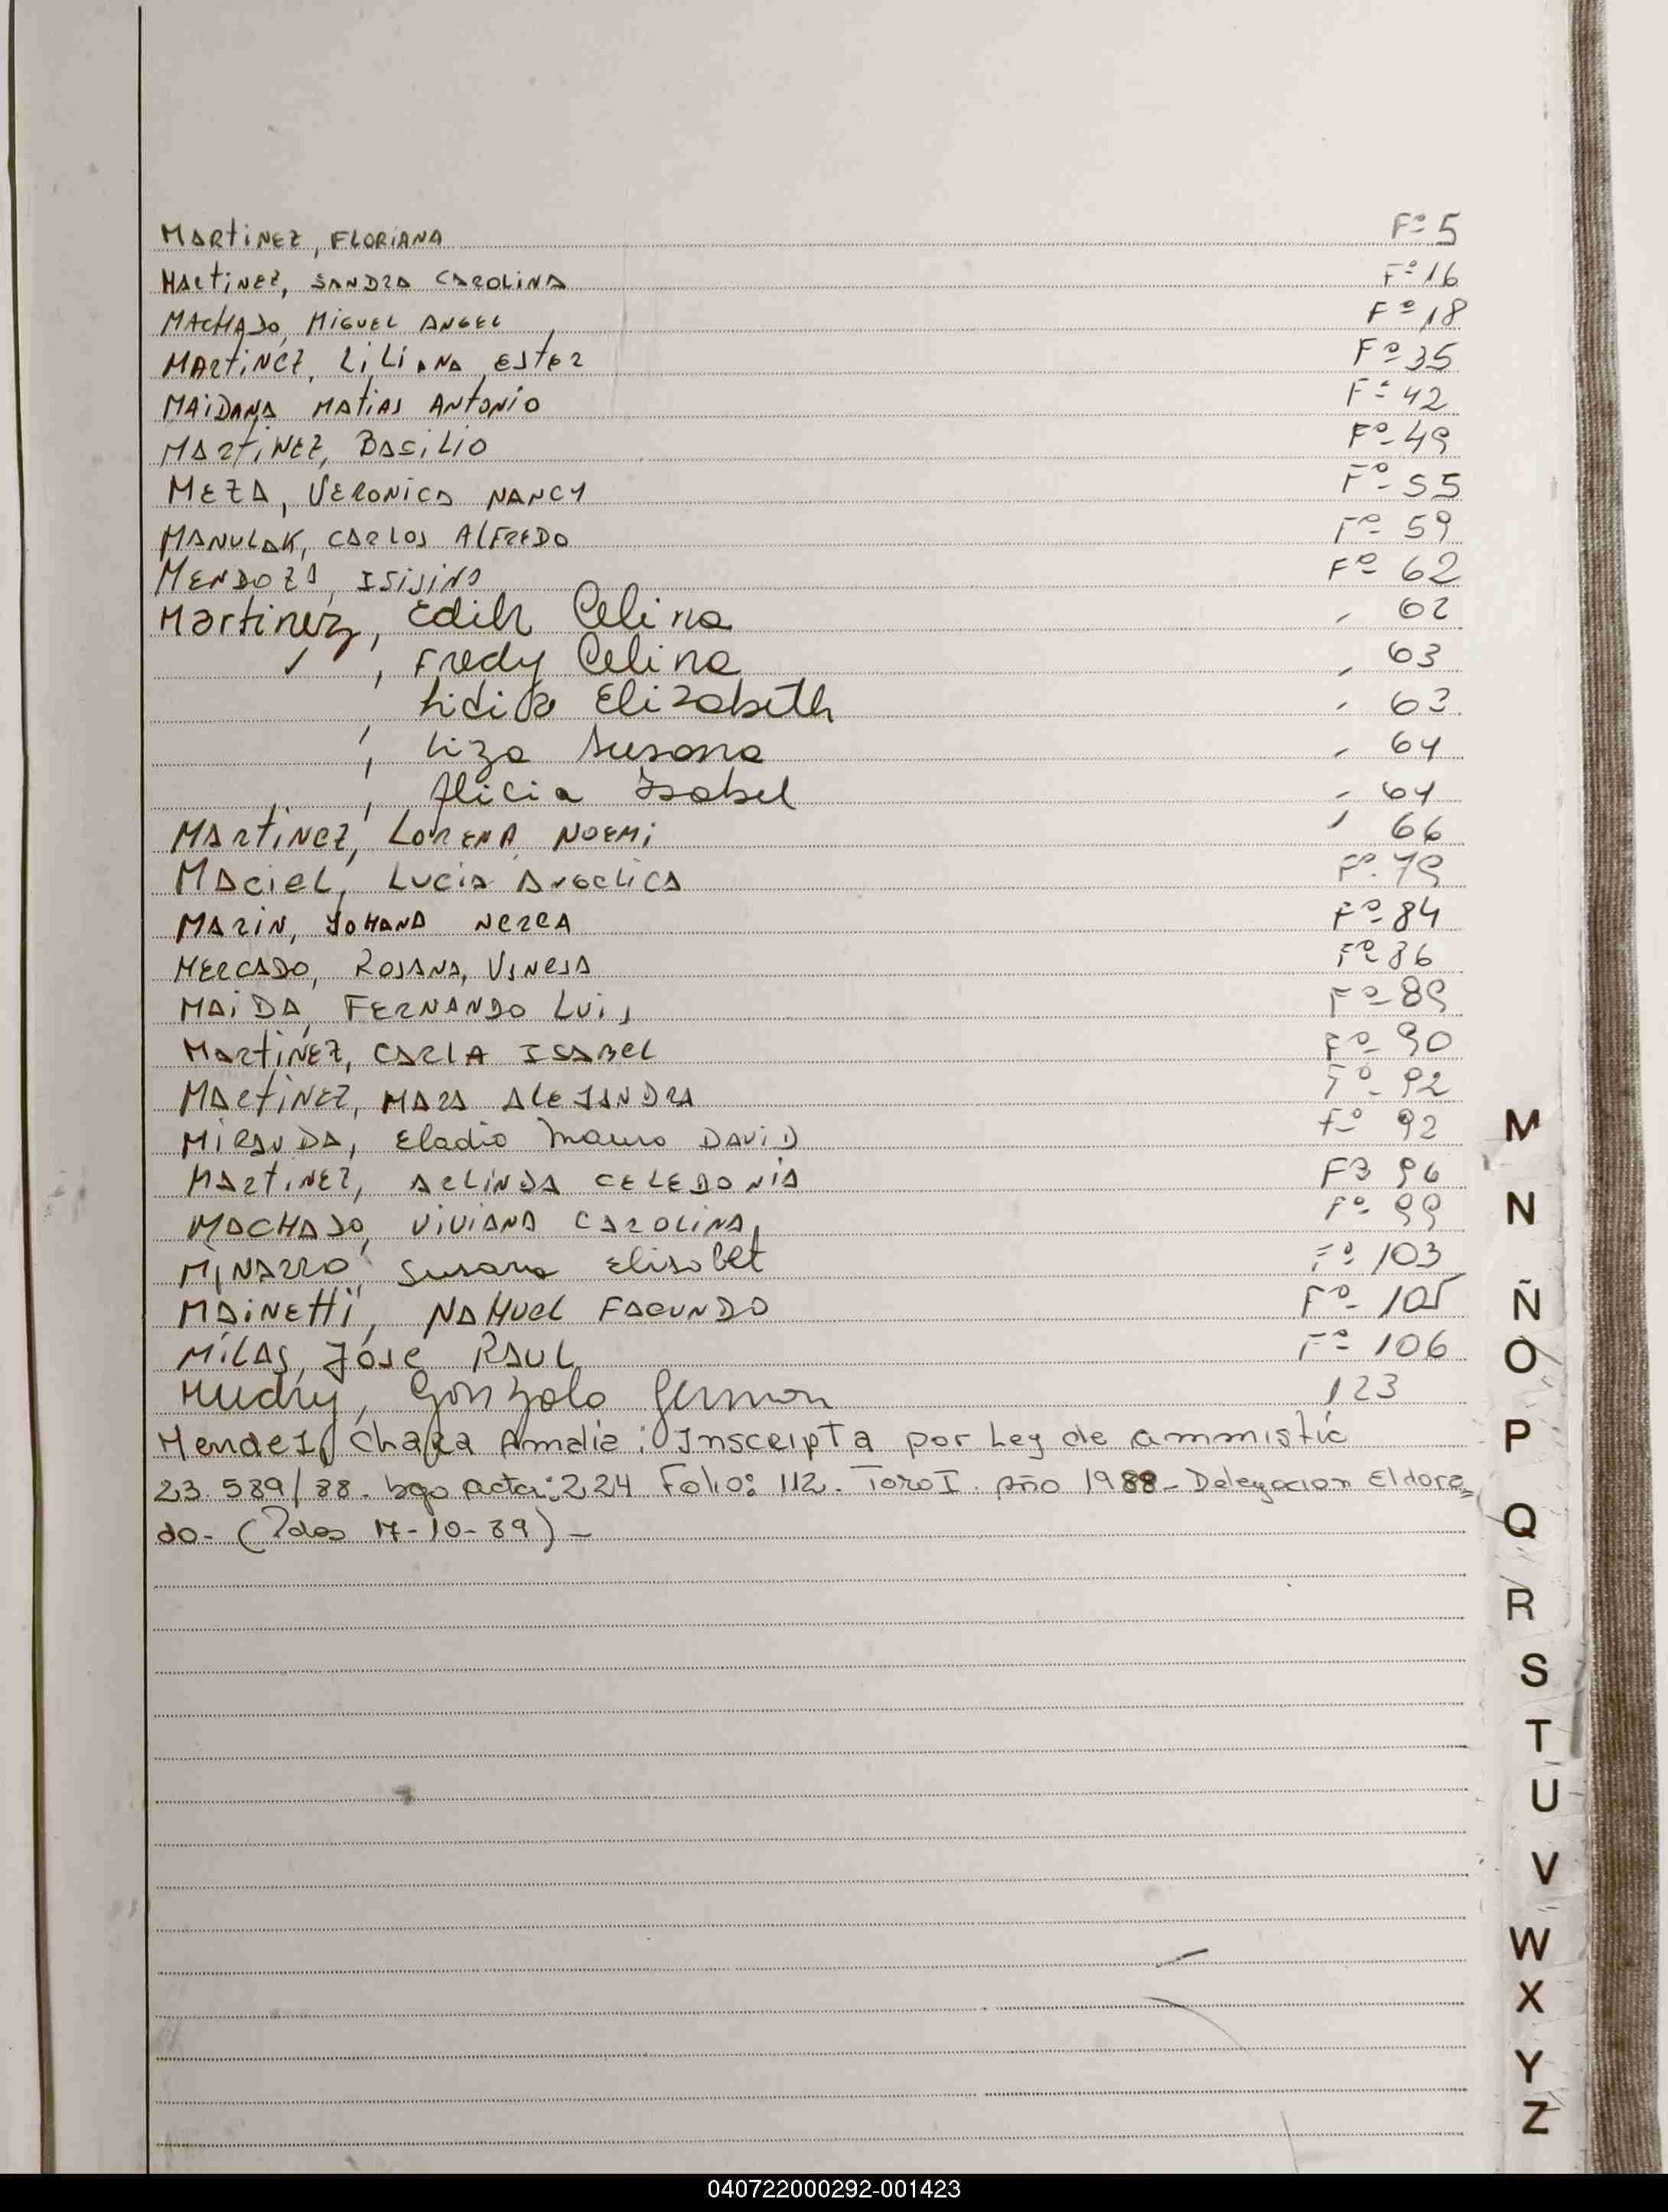 MARTINEZ, FLORIANA Fº 5
MARTINEZ, SANDRA CAROLINA Fº 16
MACHADO, MIGUEL ANGEL Fº 18
MARTINEZ, LILIANA ESTER Fº 35
MAIDANA MATIAS ANTONIO Fº 42
MARTINEZ, BASILIO Fº 49
MEZA, VERONICA NANCY Fº 55
MANULAK, CARLOS ALFREDO Fº 59
MENDOZA, ISISINO Fº 62
Martinez, Edih Celina 62
, Fredy Celina 63
Lidia Elizabeth 63
, Liza Susana 64
, Alicia Isabel 64
MARTINEZ, LORENA NOEMI 66
MACIEL, LUCIA ANGELICA Fº 79
MARIN, YOHANA NEREA Fº 84
MERCADO, ROSANA, VANESA Fº 86
MAIDA, FERNANDO LUIS Fº 89
MARTINEZ, CARLA ISABEL Fº 90
MARTINEZ, MARA ALEJANDRA Fº 92
MIRANDA, Eladio Mauro DAVID Fº 92
MARTINEZ, ARLINDA CELEDONIA Fº 96
MACHADO, VIVIANA CAROLINA Fº 99
MIÑARRO, Susana Elisabet Fº 103
MAINETTI, NAHUEL FACUNDO Fº 105
MILAS, José RAUL Fº 106
Mudry, Gonzalo German 123
Mendez, Amalia: Inscripta por Ley de ammistic
23.589/88. bajo acta: 224 Folio: 112. Tomo I. Año 1988- Delegacion Eldora=
do- 17-10-89)-
M
N
Ñ
O
P
Q
R
S
T
U
V
W
X
Y
Z
040722000292-001423